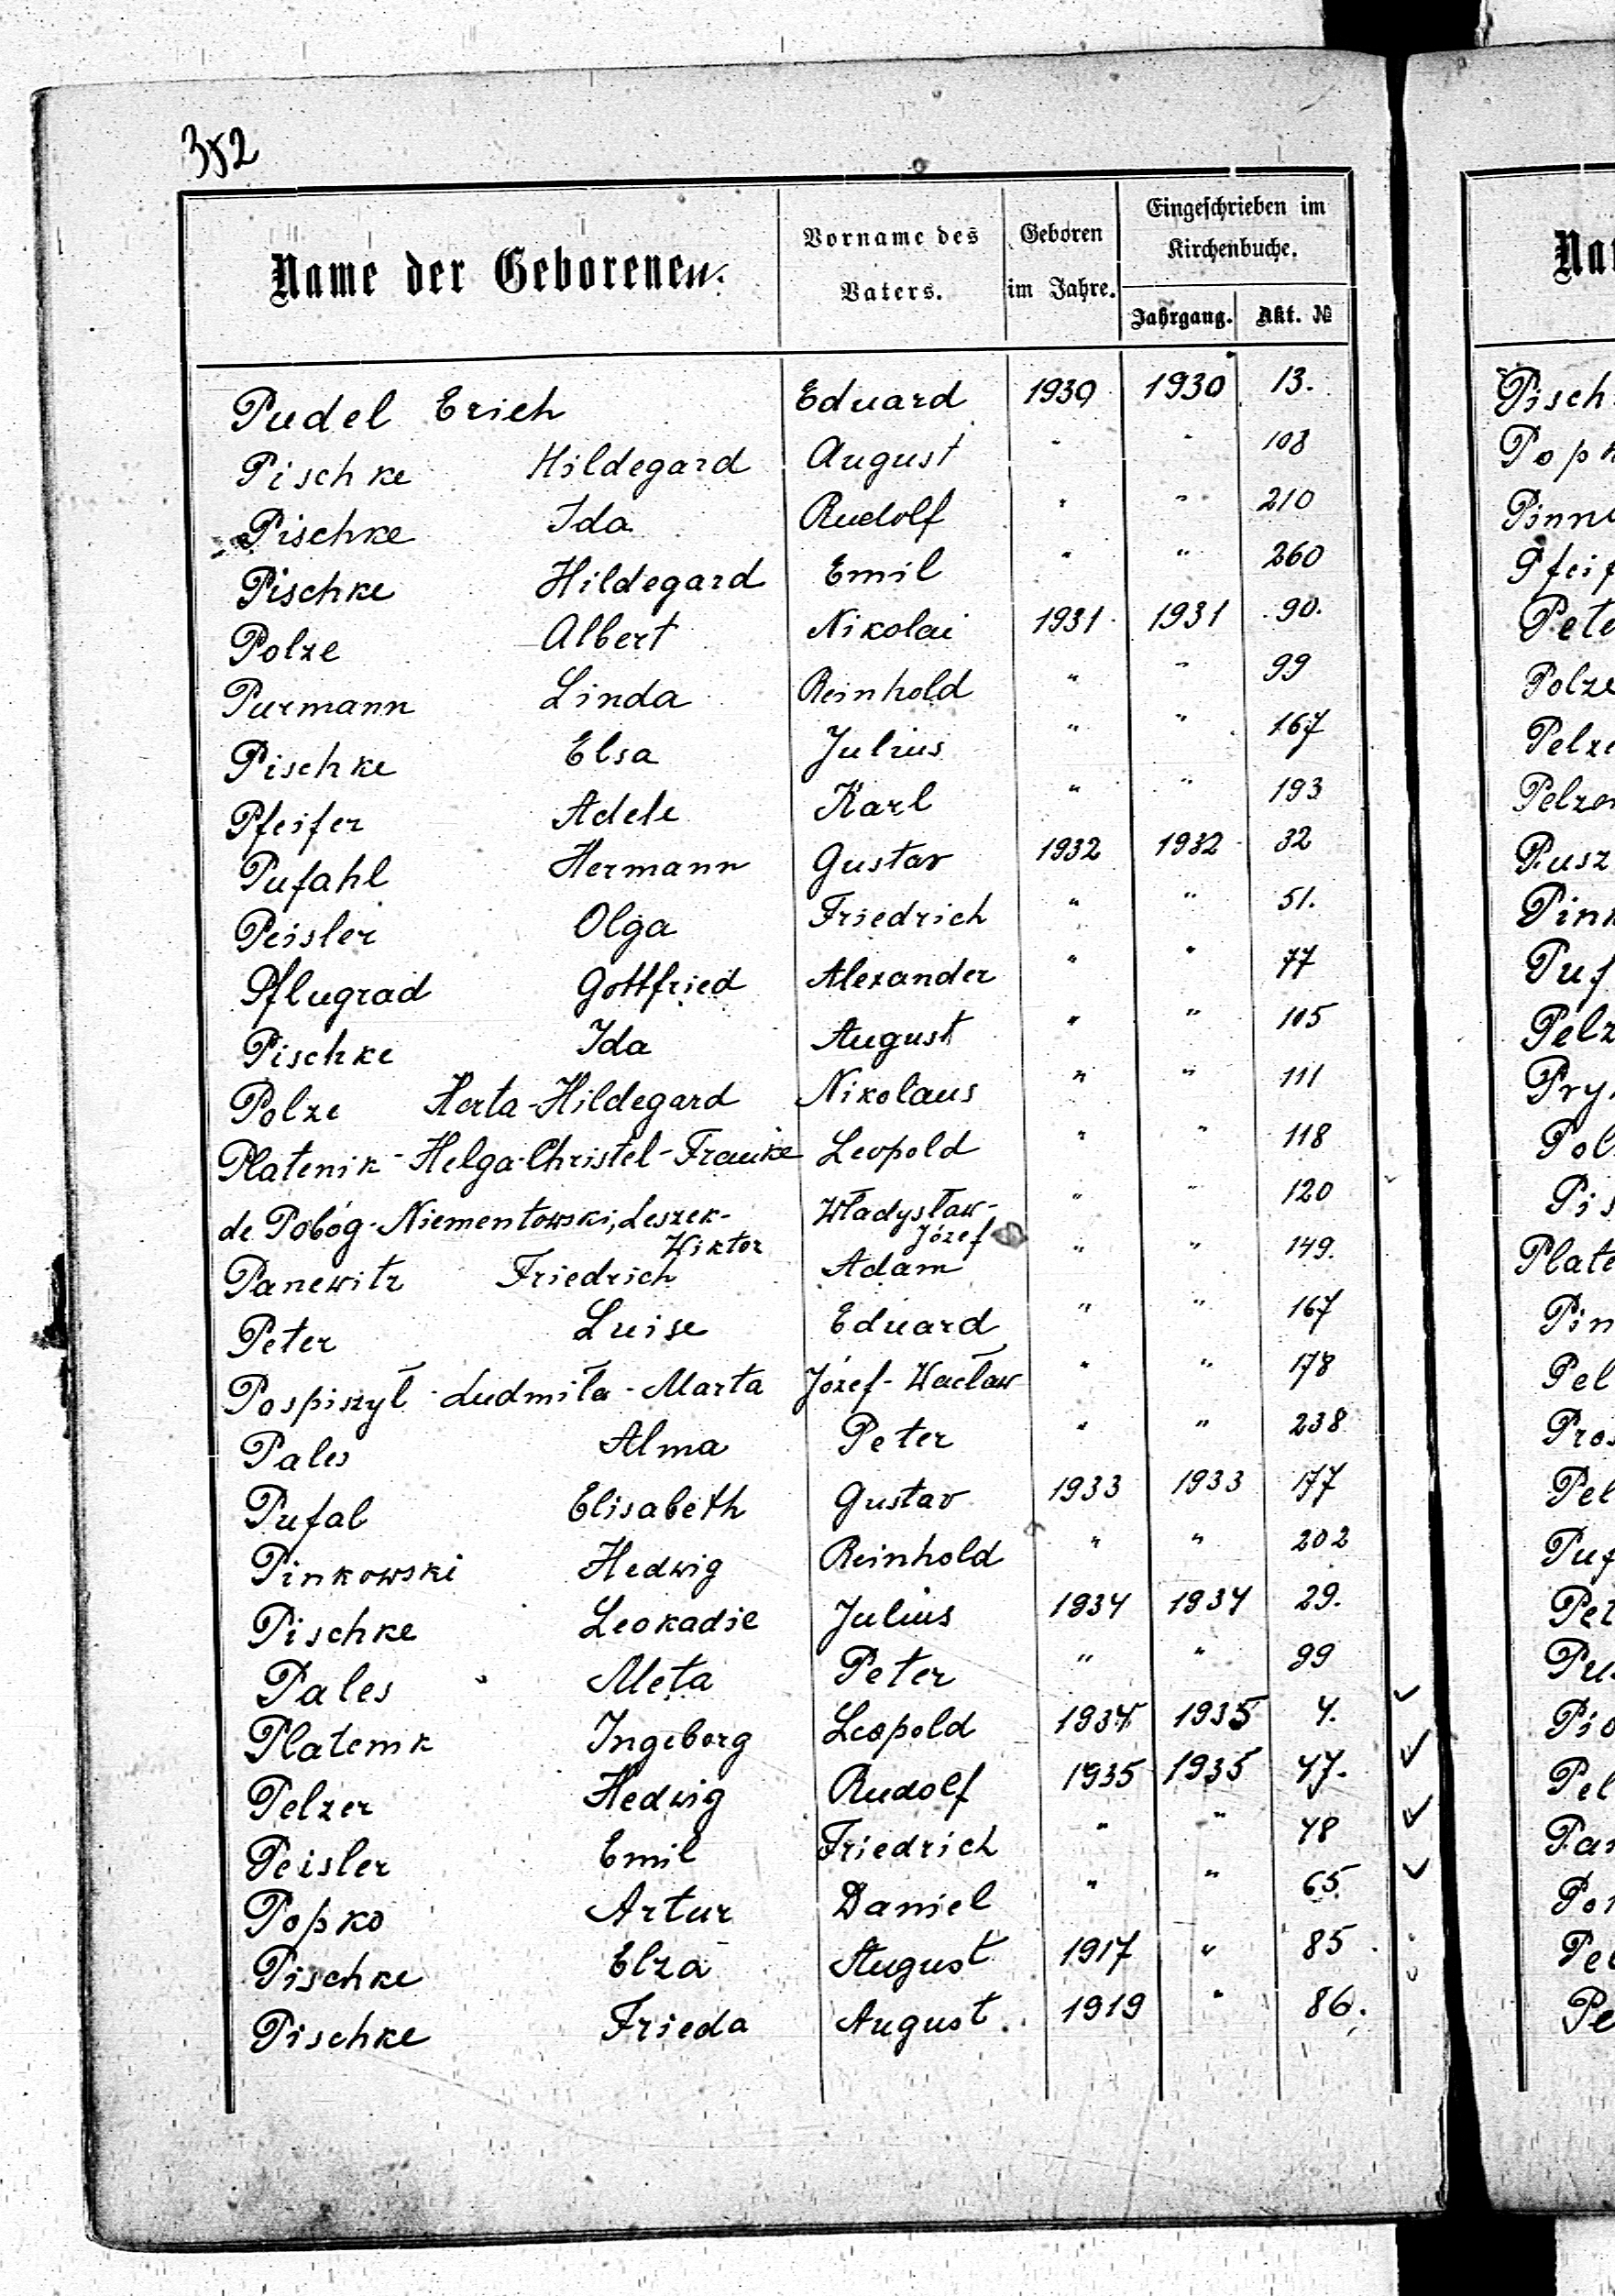 352
Name der Geborenen.
Vorname des Vaters.
Geboren im Jahre.
Eingeschrieben im Kirchenbuche.
Jahrgang. Akt. №
Pudel Erich Eduard 1930 1930 13.
Pischke Hildegard August " " 108
Pischke Ida Rudolf " " 210
Pischke Hildegard Emil " " 260
Polze Albert Nikolai 1931 1931 90.
Purmann Linda Reinhold " " 99
Pischke Elsa Julius " " 167
Pfeifer Adele Karl " " 193
Pufahl Hermann Gustav 1932 1932 32
Peisler Olga Friedrich " " 51.
Pflugrad Gottfried Alexander " " 77
Pischke Ida August " " 105
Polze Herta-Hildegard Nikolaus " " 111
Platenik - Helga-Christel-Frauke Leopold " " 118
de Pobóg-Niementowski, Leszek-Wiktor Władysław-Józef " " 120
Panewitz Friedrich Adam " " 149.
Peter Luise Eduard " " 167
Pospiszył - Ludmiła - Marta Józef-Wacław " " 178
Pales Alma Peter " " 238
Pufal Elisabeth Gustav 1933 1933 177
Pinkowski Hedwig Reinhold " " 202
Pischke Leokadie Julius 1934 1934 29.
Pales Meta Peter " " 99
Platenik Ingeborg Leopold 1934 1935 4.
Pelzer Hedwig Rudolf 1935 1935 47.
Peisler Emil Friedrich " " 48
Popko Artur Daniel " " 65
Pischke Elza August 1917 " 85
Pischke Frieda August. 1919 " 86.